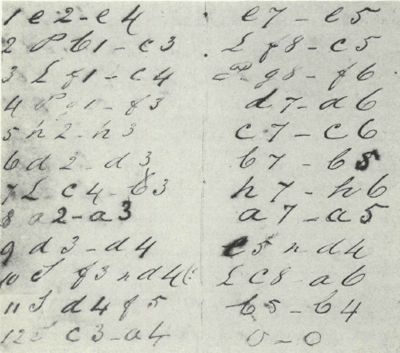 1 e2-e4 e7-e5
2 P b1-c3 L f8-c5
3 L f1-c4 g8-f6
4 P g1-f3 d7-d6
5 h2-h3 c7-c6
6 d2-d3 b7-b5
7 L c4-b3 h7-h6
8 a2-a3 a7-a5
9 d3-d4 e5 n d4
10 f3 n d4 L c8-a6
11 d4 f5 b5-b4
12 c3-a4 o-o